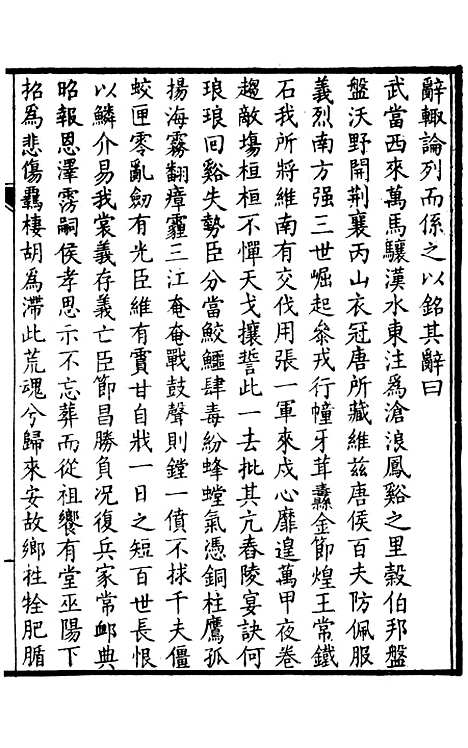 辭輙論列而係之以銘其辭曰
武當西來萬馬驤漢水東注爲滄浪鳳谿之里穀伯邦盤
盤沃野開荆襄丙山衣冠唐所藏維兹唐侯百夫防佩服
義烈南方强三世崛起叅戎行幢牙茸纛金節煌王常鐵
石我所將維南有交伐用張一軍來戍心靡遑萬甲夜卷
趨敵塲桓桓不憚天戈攘誓此一去批其亢舂陵宴訣何
琅琅回谿失勢臣分當鮫鱷肆毒紛蜂螳氣憑銅柱鷹孤
揚海霧翻瘴霾三江奄奄戰鼓聲則鏜一僨不捄千夫僵
蛟匣零亂劒有光臣維有霣甘自戕一日之短百世長恨
以鱗介易我裳義存義亡臣節昌勝負况復兵家常䘏典
昭報恩澤雱嗣侯孝思示不忘葬而從祖饗有堂巫陽下
招爲悲傷羈棲胡爲滯此荒魂兮歸來安故鄉牲牷肥腯